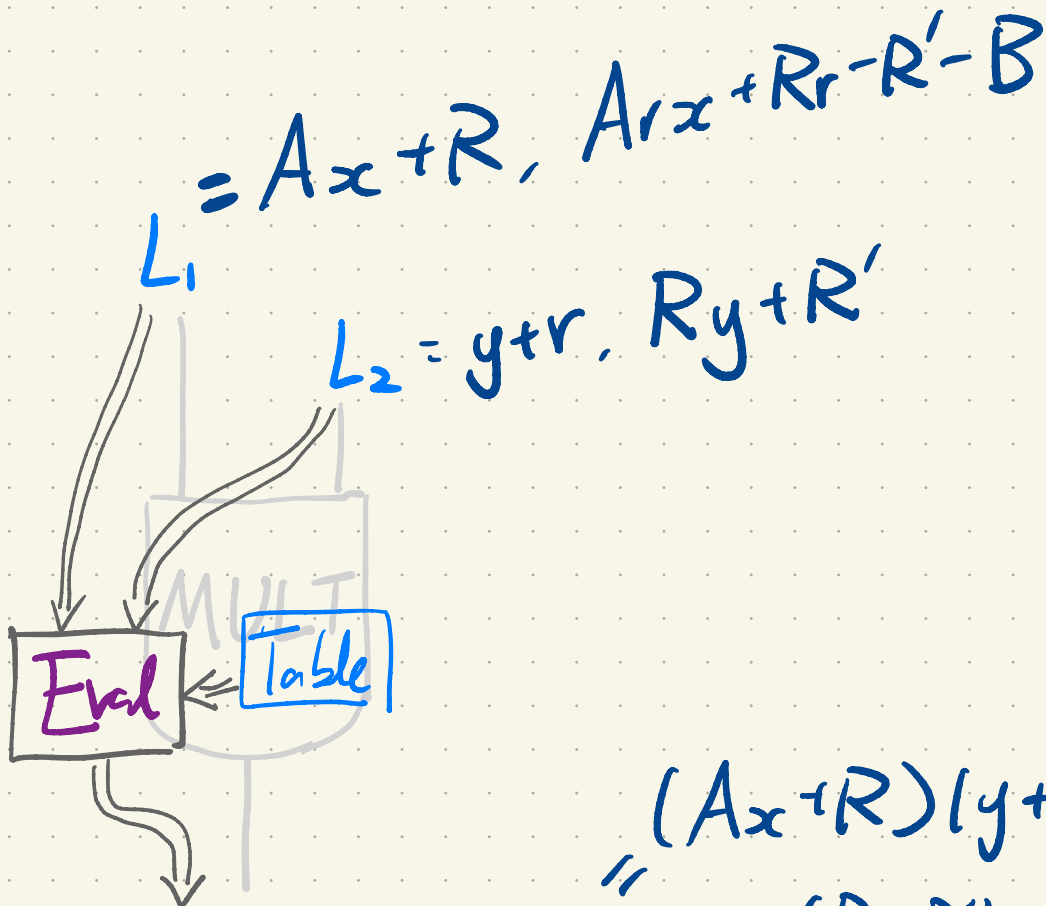 L₁ = Ax + R, Arx + Rr - R' - B
L₂ = y + r, Ry + R'
MULT
Eval
Table
(Ax + R)(y +